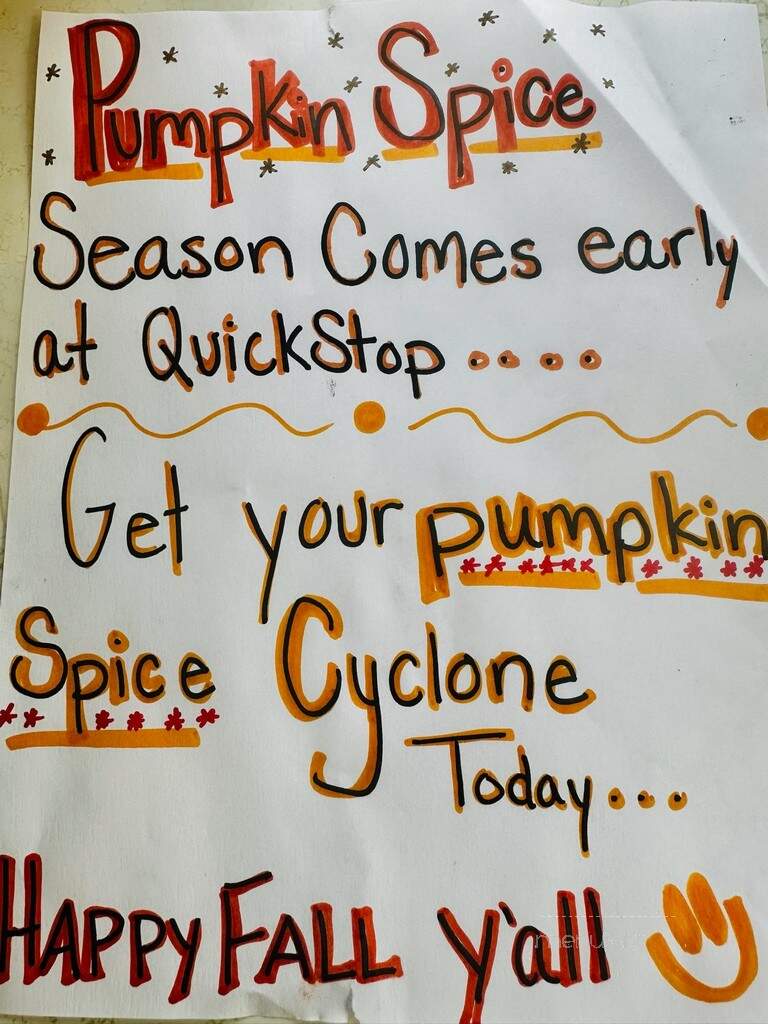 Pumpkin Spice
Season Comes early
at QuickStop ....
Get your pumpkin
Spice Cyclone
Today...
HAPPY FALL y'all